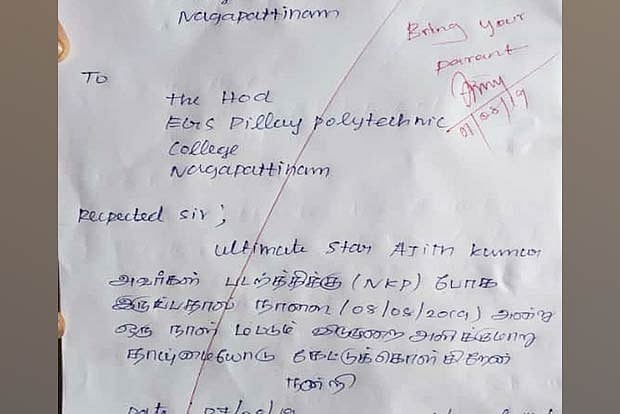 Nagapattinam
Bring your
parant
07/08/19
To
the Hod
EGS Pillay polytechnic
college
Nagapattinam
Recpected sir ;
ultimate star Ajith kumar
அவர்கள் படத்திக்கு (NKP) போக
இருப்பதால் நாளை (08/08/2019) அன்று
ஒரு நாள் மட்டும் விடுமுறை அளிக்குமாறு
தாய்மையோடு கேட்டுக்கொள்கிறேன்
நன்றி